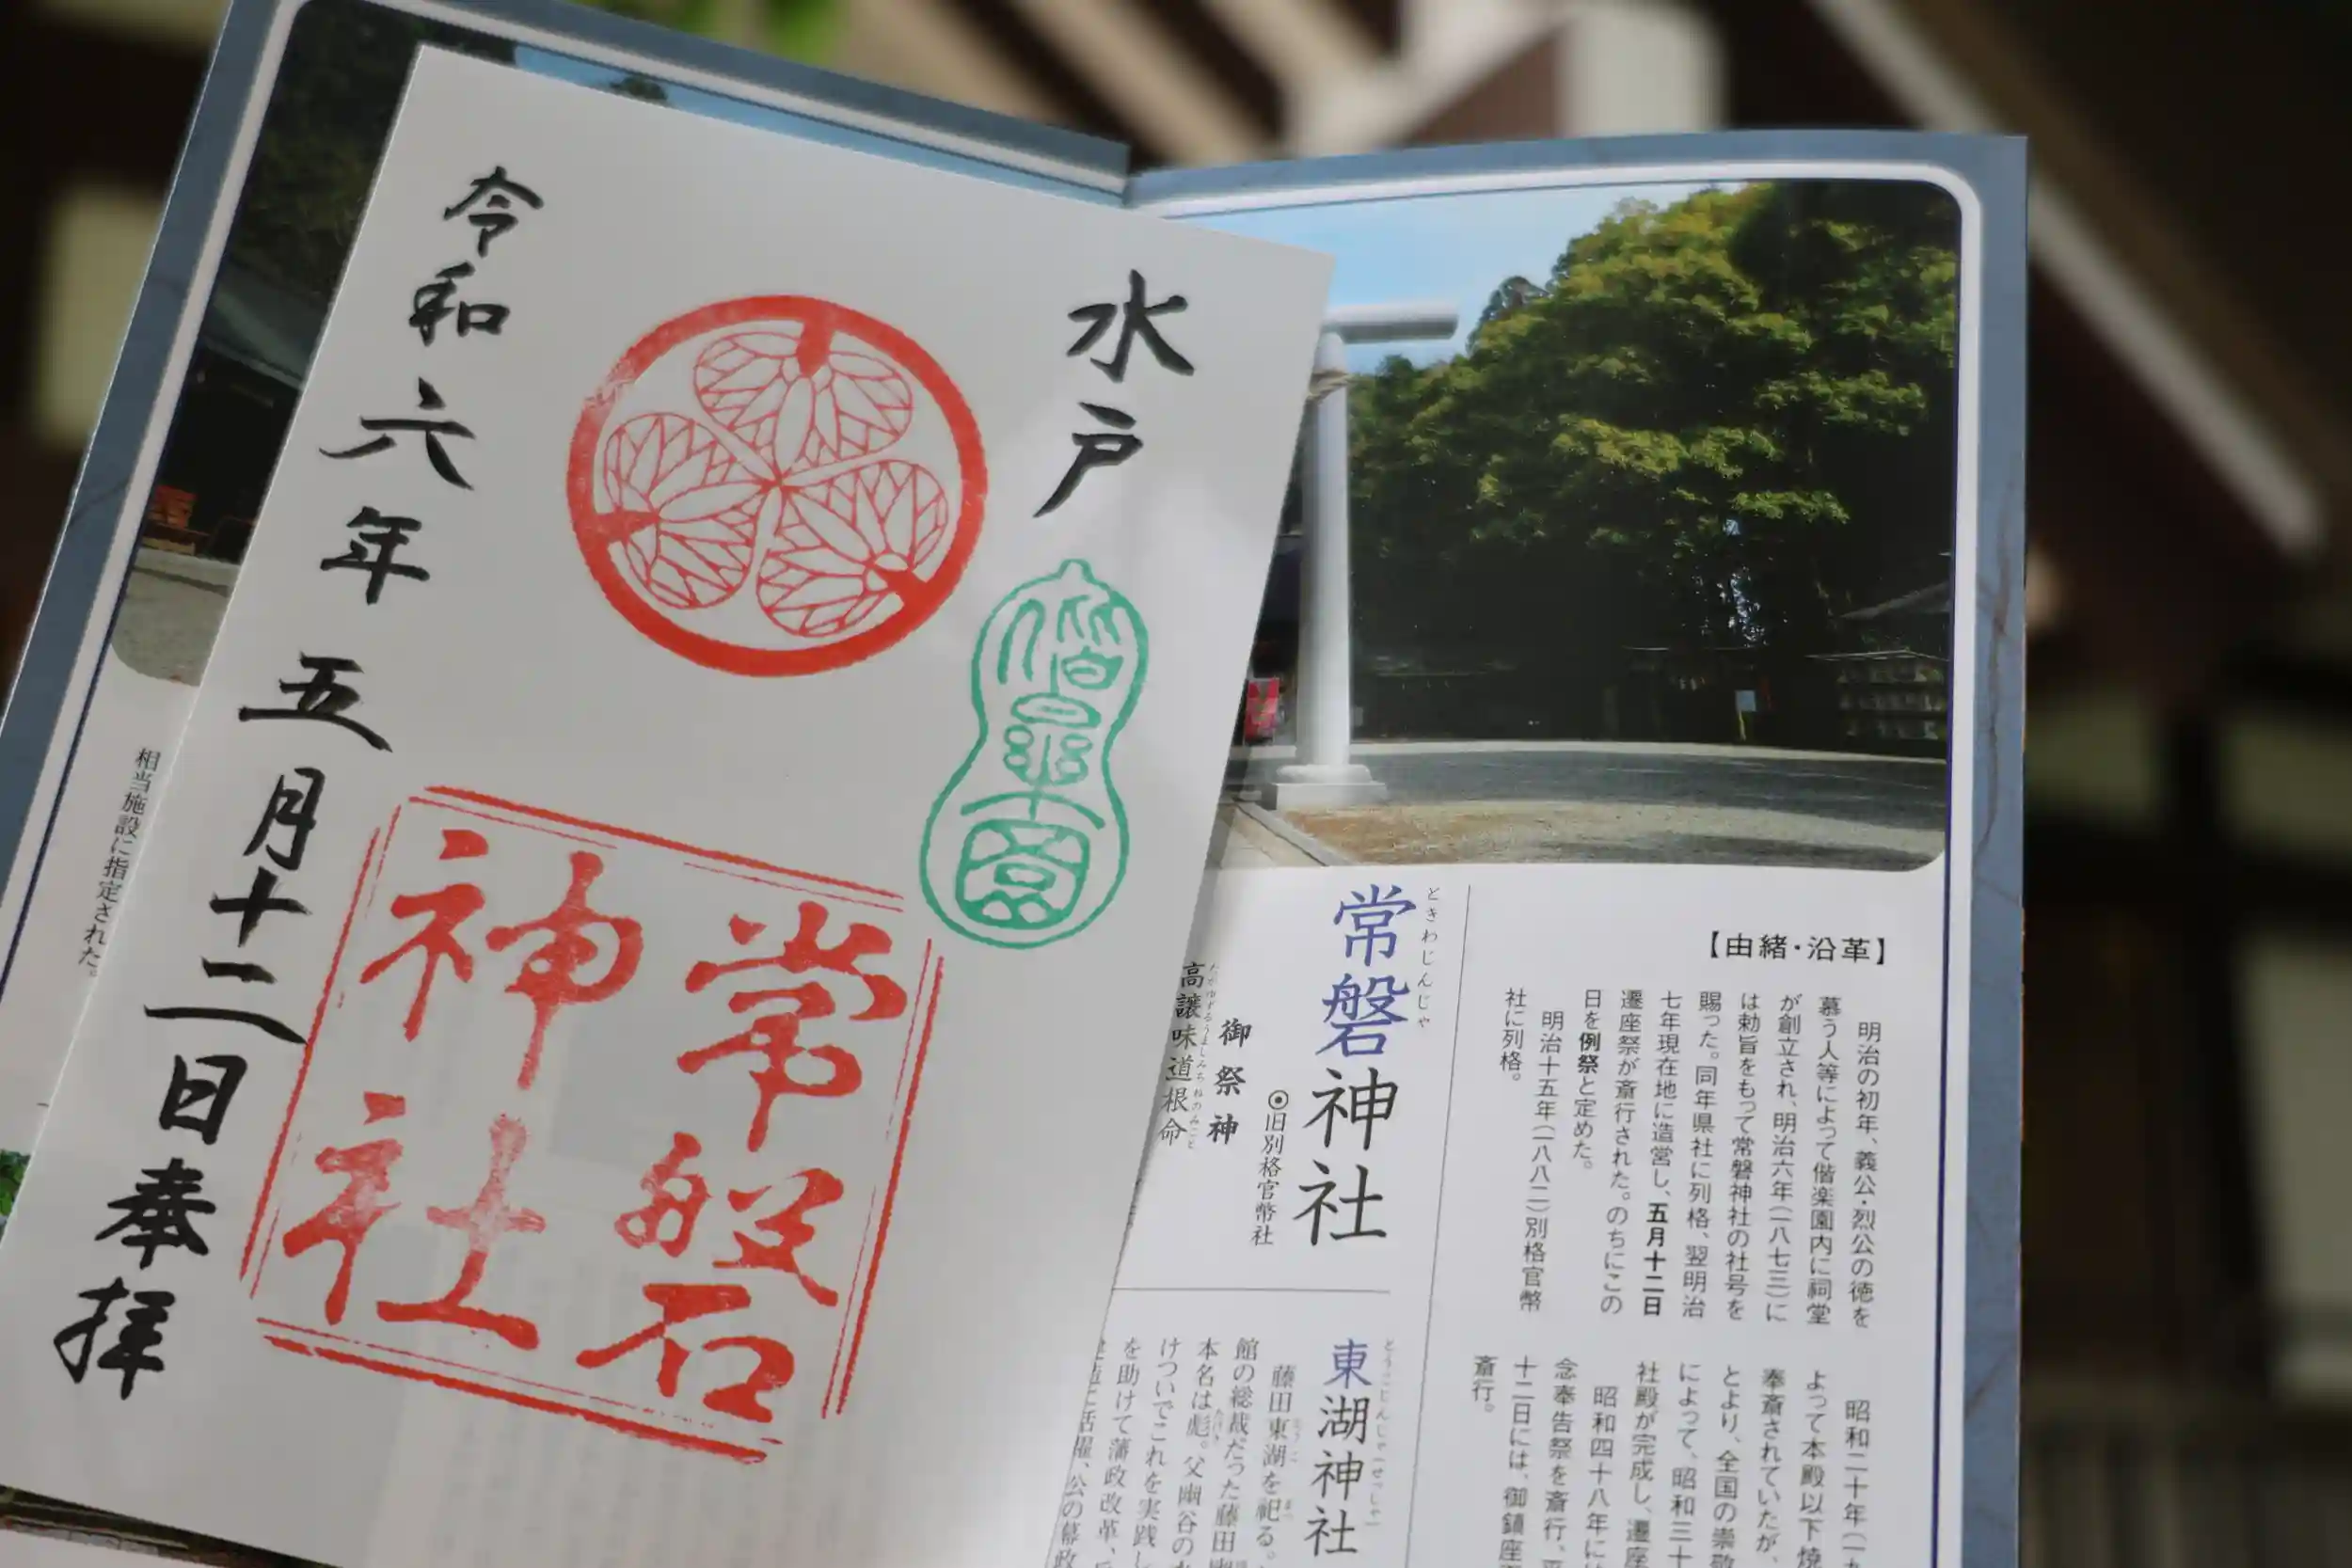 水戸
偕楽園
常磐
神社
令和六年五月十二日奉拝
【由緒・沿革】
明治の初年、義公・烈公の徳を
慕う人等によって偕楽園内に祠堂
が創立され、明治六年(一八七三)に
は勅旨をもって常磐神社の社号を
賜った。同年県社に列格、翌明治
七年現在地に造営し、五月十二日
遷座祭が斎行された。のちにこの
日を例祭と定めた。
明治十五年(一八八二)別格官幣
社に列格。
昭和二十年(一
よって本殿以下焼
奉斎されていたが、
とより、全国の崇敬
によって、昭和三十
社殿が完成し、遷座
昭和四十八年に
念奉告祭を斎行、
十二日には、御鎮座
斎行。
ときわじんじゃ
常磐神社
◉旧別格官幣社
御祭神
高譲味道根命
東湖神社
藤田東湖を祀る。
館の総裁だった藤田
本名は彪。父幽谷の
けついでこれを実践し
を助けて藩政改革、
に活躍、公の幕政
相当施設に指定された。